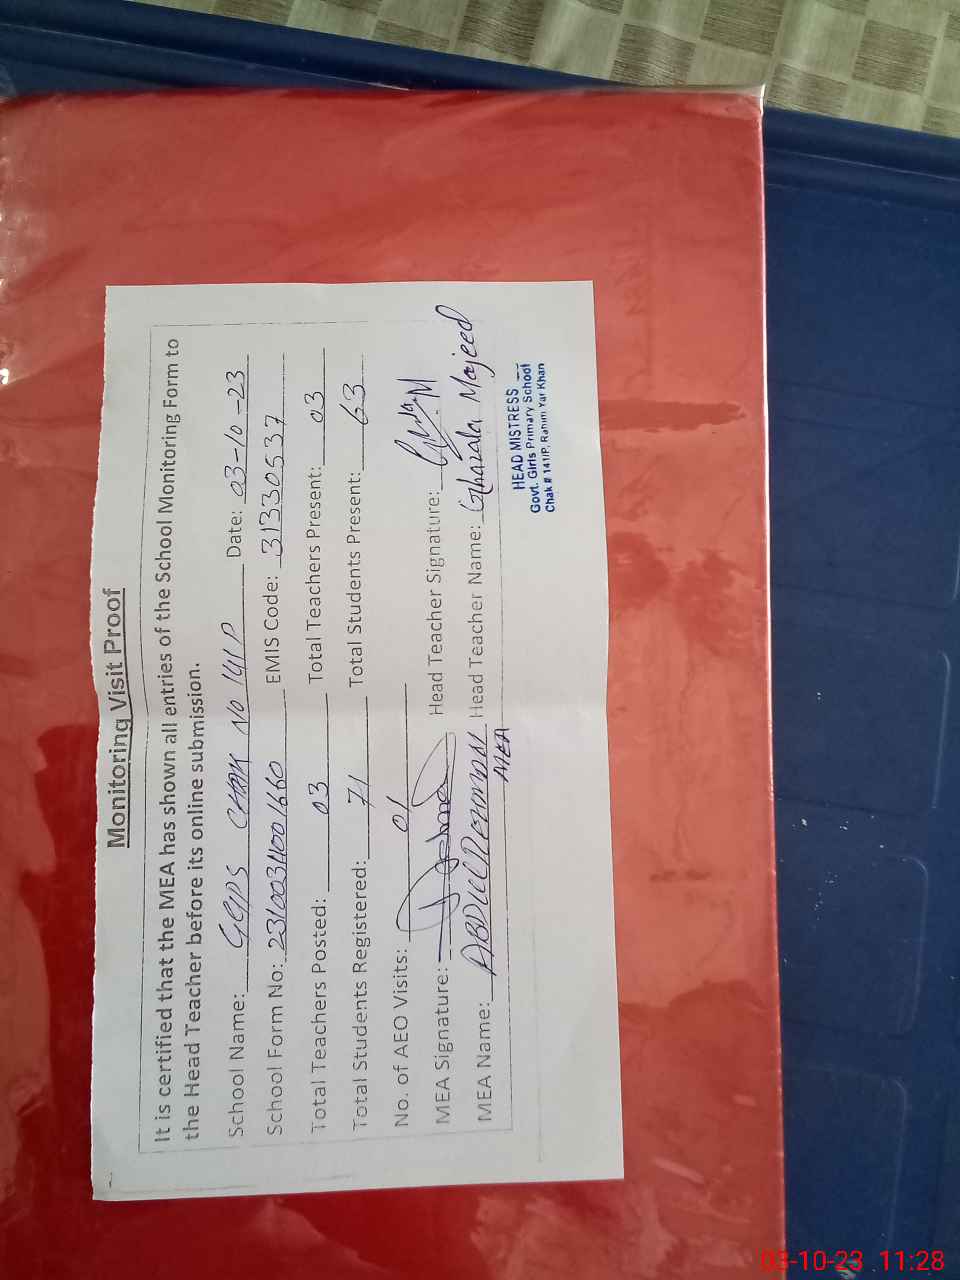 Monitoring Visit Proof
It is certified that the MEA has shown all entries of the School Monitoring Form to
the Head Teacher before its online submission.
School Name: GGPS CHAK NO 141P Date: 03-10-23
School Form No: EMIS Code: 31330537
Total Teachers Posted: 03 Total Teachers Present: 03
Total Students Registered: 71 Total Students Present: 63
No. of AEO Visits: 01
MEA Signature: Head Teacher Signature:
MEA Name: ABDUL REHMAN Head Teacher Name: Ghazala Majeed
MEA
HEAD MISTRESS
Govt. Girls Primary School
Chak # 141/P, Rahim Yar Khan
03-10-23 11:28